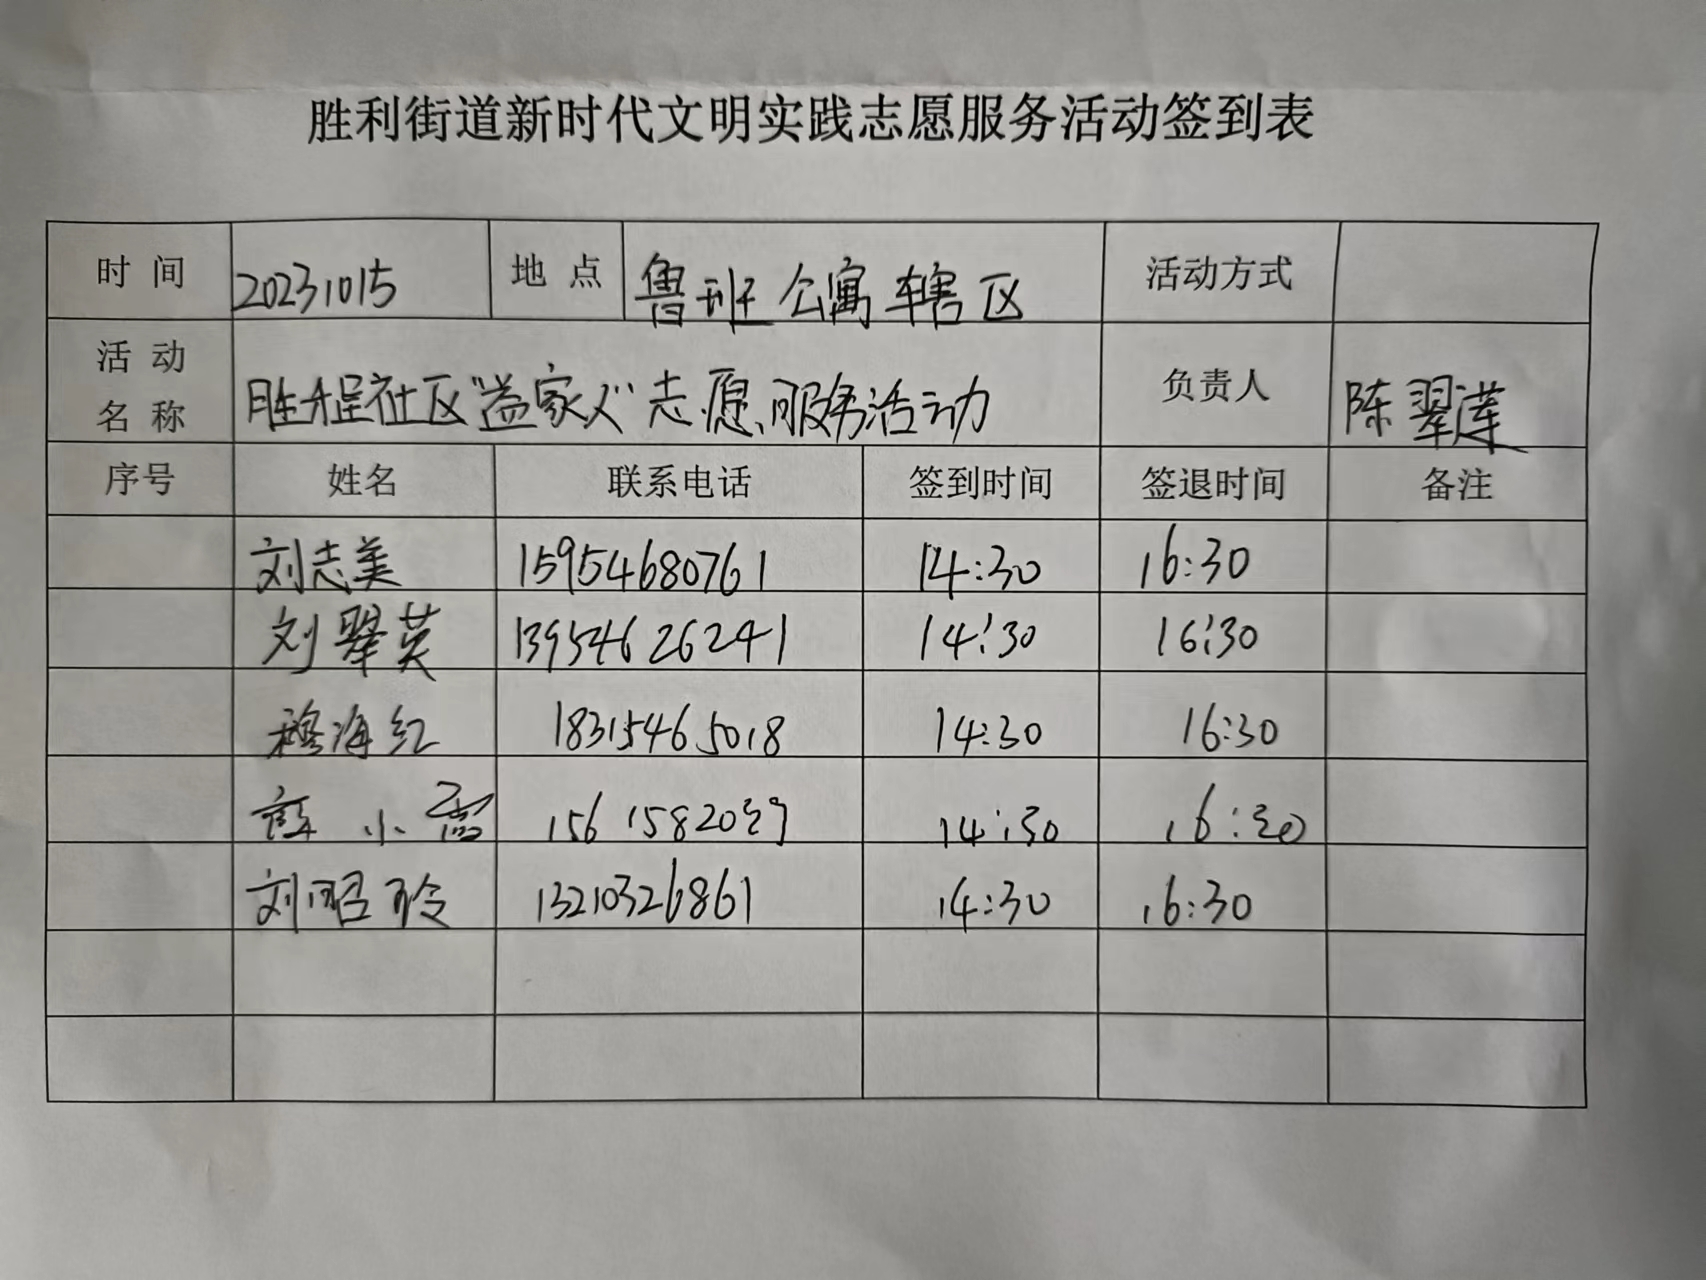 胜利街道新时代文明实践志愿服务活动签到表
时 间 20231015 地 点 鲁班公寓辖区 活动方式
活 动 名 称 胜程社区“益家人”志愿服务活动 负责人 陈翠莲
序号 姓名 联系电话 签到时间 签退时间 备注
刘志美 15954680761 14:30 16:30
刘翠英 13954626241 14:30 16:30
穆海红 18315465018 14:30 16:30
小 14:30 16:30
刘昭玲 13210326861 14:30 16:30